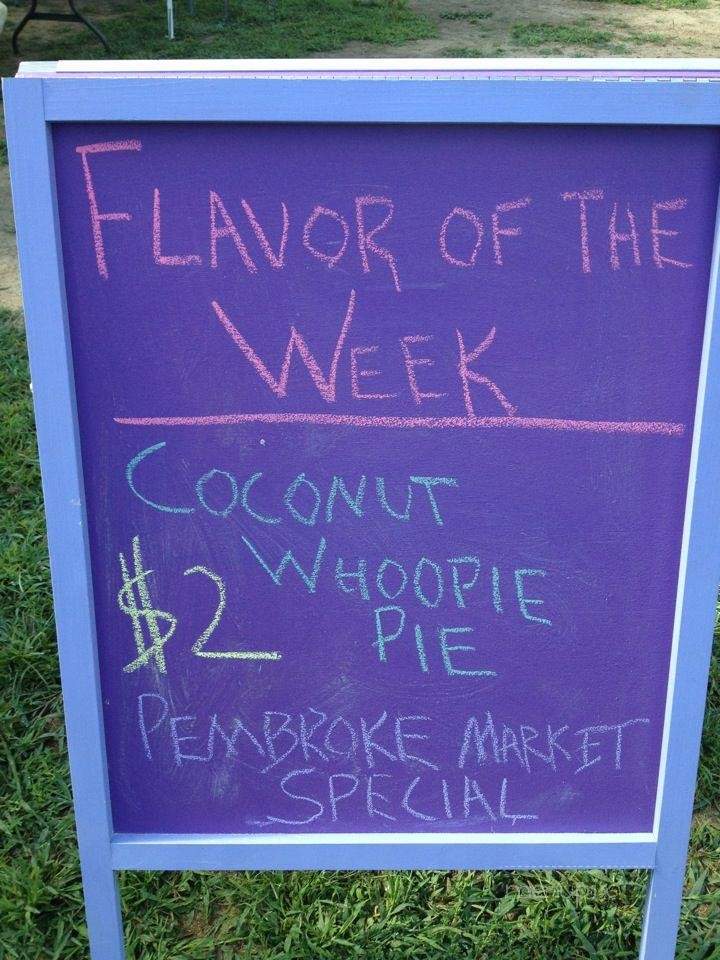 FLAVOR OF THE
WEEK
COCONUT
WHOOPIE
$2
PIE
PEMBROKE MARKET
SPECIAL